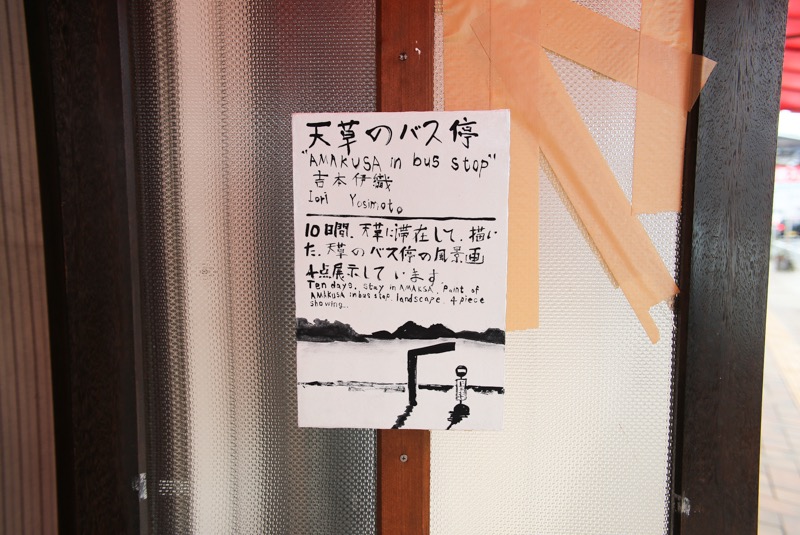 天草のバス停
"AMAKUSA in bus stop"
吉本伊織
Iori Yosimoto
10日間、天草に滞在して、描い
た、天草のバス停の風景画
4点展示しています
Ten days, stay in AMAKSA. Paint of
AMAKUSA in bus stop landscape 4 piece
showing...